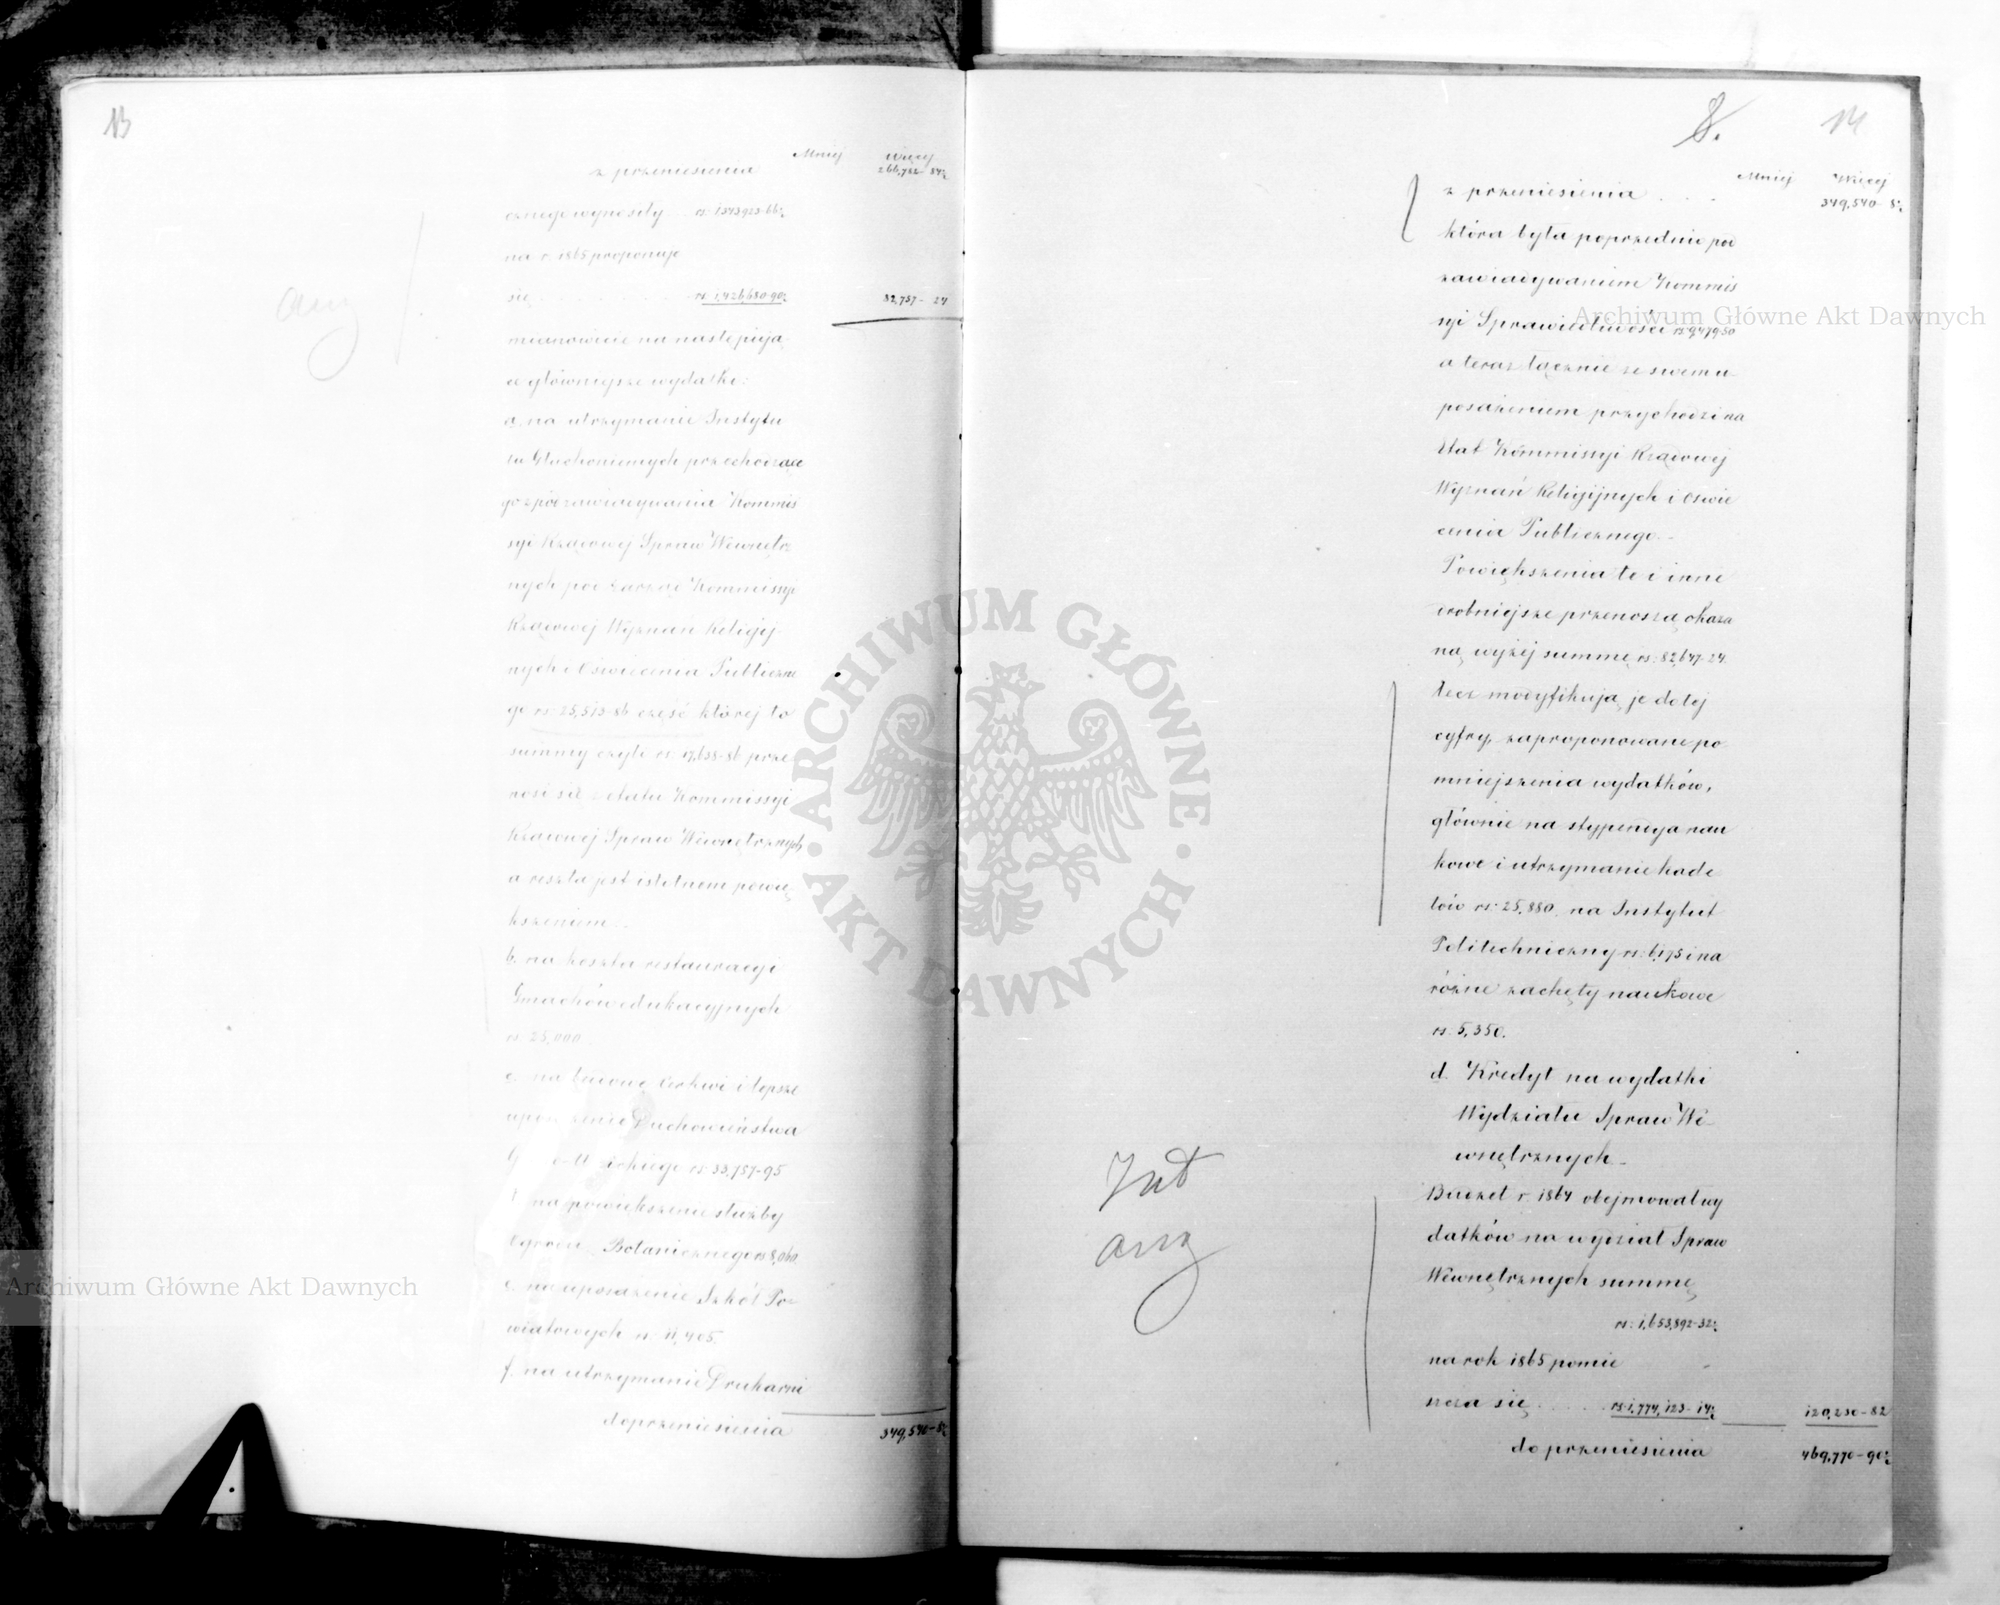 13
Mniej Więcej
z przeniesienia 266,782- 84½
cznego wynosiły rs: 1343923-66½
na r. 1865 proponuje
się rs: 1,426,680-90½ 82,757- 24
mianowicie na następują
ce główniejsze wydatki:
a. na utrzymanie Instytu
tu Głuchoniemych przechodzące
go z pod zawiadywania Kommis
syi Rządowej Spraw Wewnętrz
nych pod Zarząd Kommissyi
Rządowej Wyznań Religij-
nych i Oświecenia Publiczne
go rs: 25,513-86 część której to
summy czyli rs: 17,638-86 prze
nosi się z etatu Kommissyi
Rządowej Spraw Wewnętrznych
a reszta jest istotnem powię
kszeniem.
b. na koszta restauracyi
Gmachów edukacyjnych
rs: 25,000
c. na budowę Cerkwi i lepsze
Duchowieństwa
rs: 33,757-95
d. na powiększenie służby
Ogrodu Botanicznego rs
e. na uposażenie Szkół Po-
wiatowych rs: 11,405.
f. na utrzymanie Drukarni
do przeniesienia 349,540-8½
8. 14
Mniej Więcej
z przeniesienia . . . 349,540- 8½
która była poprzednio pod
zawiadywaniem Kommis
syi Sprawiedliwości rs: 9,479-50
a teraz łącznie ze swem u
posażeniem przychodzi na
Etat Kommissyi Rządowej
Wyznań Religijnych i Oświe
cenia Publicznego.-
Powiększenia te i inne
drobniejsze przenoszą okaza
ną wyżej summę rs: 82,647-24.
lecz modyfikują je do tej
cyfry, zaproponowane po
mniejszenia wydatków,
głównie na stypendya nau
kowe i utrzymanie kade
tów rs: 25,880, na Instytut
Politechniczny rs: 6,175 i na
różne zachęty naukowe
rs. 5,350.
d. Kredyt na wydatki
Wydziału Spraw We-
wnętrznych-
Budżet r. 1864 obejmował wy
datków na wydział Spraw
Wewnętrznych summę
rs: 1,653,892-32½
na rok 1865 pomie
szcza się . . . . . rs: 1,774,123-14½ 120,230-82
do przeniesienia 469,770-90½
ARCHIWUM GŁÓWNE · AKT DAWNYCH ·
Archiwum Główne Akt Dawnych
Archiwum Główne Akt Dawnych